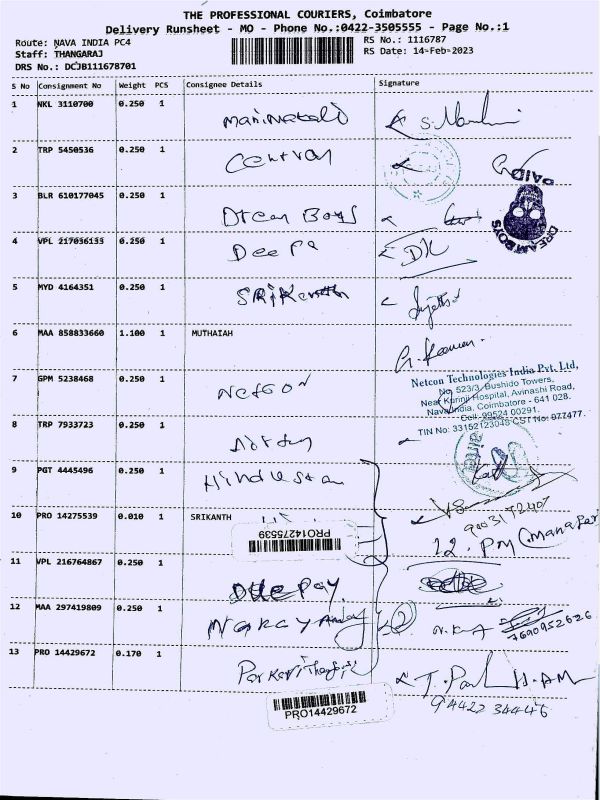 THE PROFESSIONAL COURIERS, Coimbatore
Delivery Runsheet - MO - Phone No.:0422-3505555 - Page No.:1
Route: NAVA INDIA PC4
RS No.: 1116787
Staff: THANGARAJ
RS Date: 14-Feb-2023
DRS No.: DCJB111678701
S No Consignment No Weight PCS Consignee Details Signature
1 NKL 3110700 0.250 1
2 TRP 5450536 0.250 1 Central
PAID
3 BLR 610177045 0.250 1 Dream Boys
DREAM BOYS
4 VPL 217056133 0.250 1 Deepa DK
5 MYD 4164351 0.250 1 SRIKanth
6 MAA 858833660 1.100 1 MUTHAIAH
7 GPM 5238468 0.250 1 Netcon
Netcon Technologies India Pvt. Ltd,
No. 523/3, Bushido Towers,
Near Kurinji Hospital, Avinashi Road,
Nava India, Coimbatore - 641 028.
Cell: 99524 00291.
TIN No: 33152123048 CST No: 977477.
8 TRP 7933723 0.250 1
9 PGT 4445496 0.250 1 Hindustan
10 PRO 14275539 0.010 1 SRIKANTH
PRO14275539
12. PM (Manager
11 VPL 216764867 0.250 1 Deepay.
12 MAA 297419809 0.250 1
7690952626
13 PRO 14429672 0.170 1
PRO14429672
94422 34446